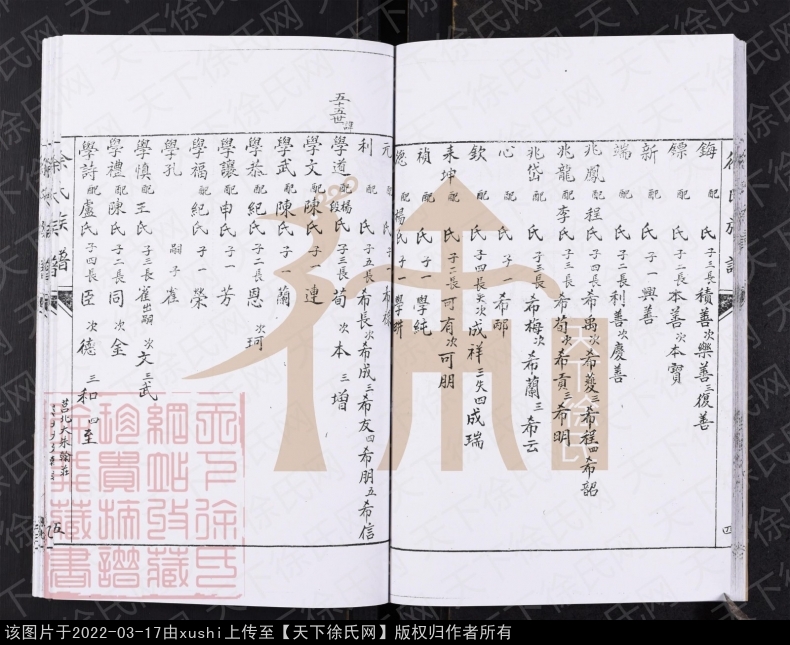 徐氏族譜
鋂 配 氏 子三長積善次樂善三復善
鏢 配 氏 子二長本善次本寶
新 配 氏 子一興善
端 配 氏 子二長利善次慶善
兆鳳 配程氏 子四長希禹次希夔三希程四希韶
兆龍 配李氏 子三長希荀次希貢三希明
兆岱 配 氏 子三長希梅次希蘭三希云
心 配 氏 子一希邵
欽 配 氏 子四長失次成祥三失四成瑞
來坤 配 氏 子二長可有次可朋
禎 配 氏 子一學純
德 配楊氏 子一學
四
元 配 氏 子一希
利 配 氏 子五長希長次希成三希友四希朋五希信
五十五世
學道 配楊段氏 子三長荀次本三增
學文 配陳氏 子一連
學武 配陳氏 子一蘭
學恭 配紀氏 子二長恩次珂
學讓 配申氏 子一芳
學福 配紀氏 子一榮
學孔 嗣子雀
學慎 配王氏 子三長雀出嗣次文三武
學禮 配陳氏 子二長同次金
學詩 配盧氏 子四長臣次德三和四至
徐氏族譜
莒北大朱翰莊
五
天下徐氏網站收藏珍貴族譜徐熙藏書
天下徐氏网
该图片于2022-03-17由xushi上传至【天下徐氏网】版权归作者所有